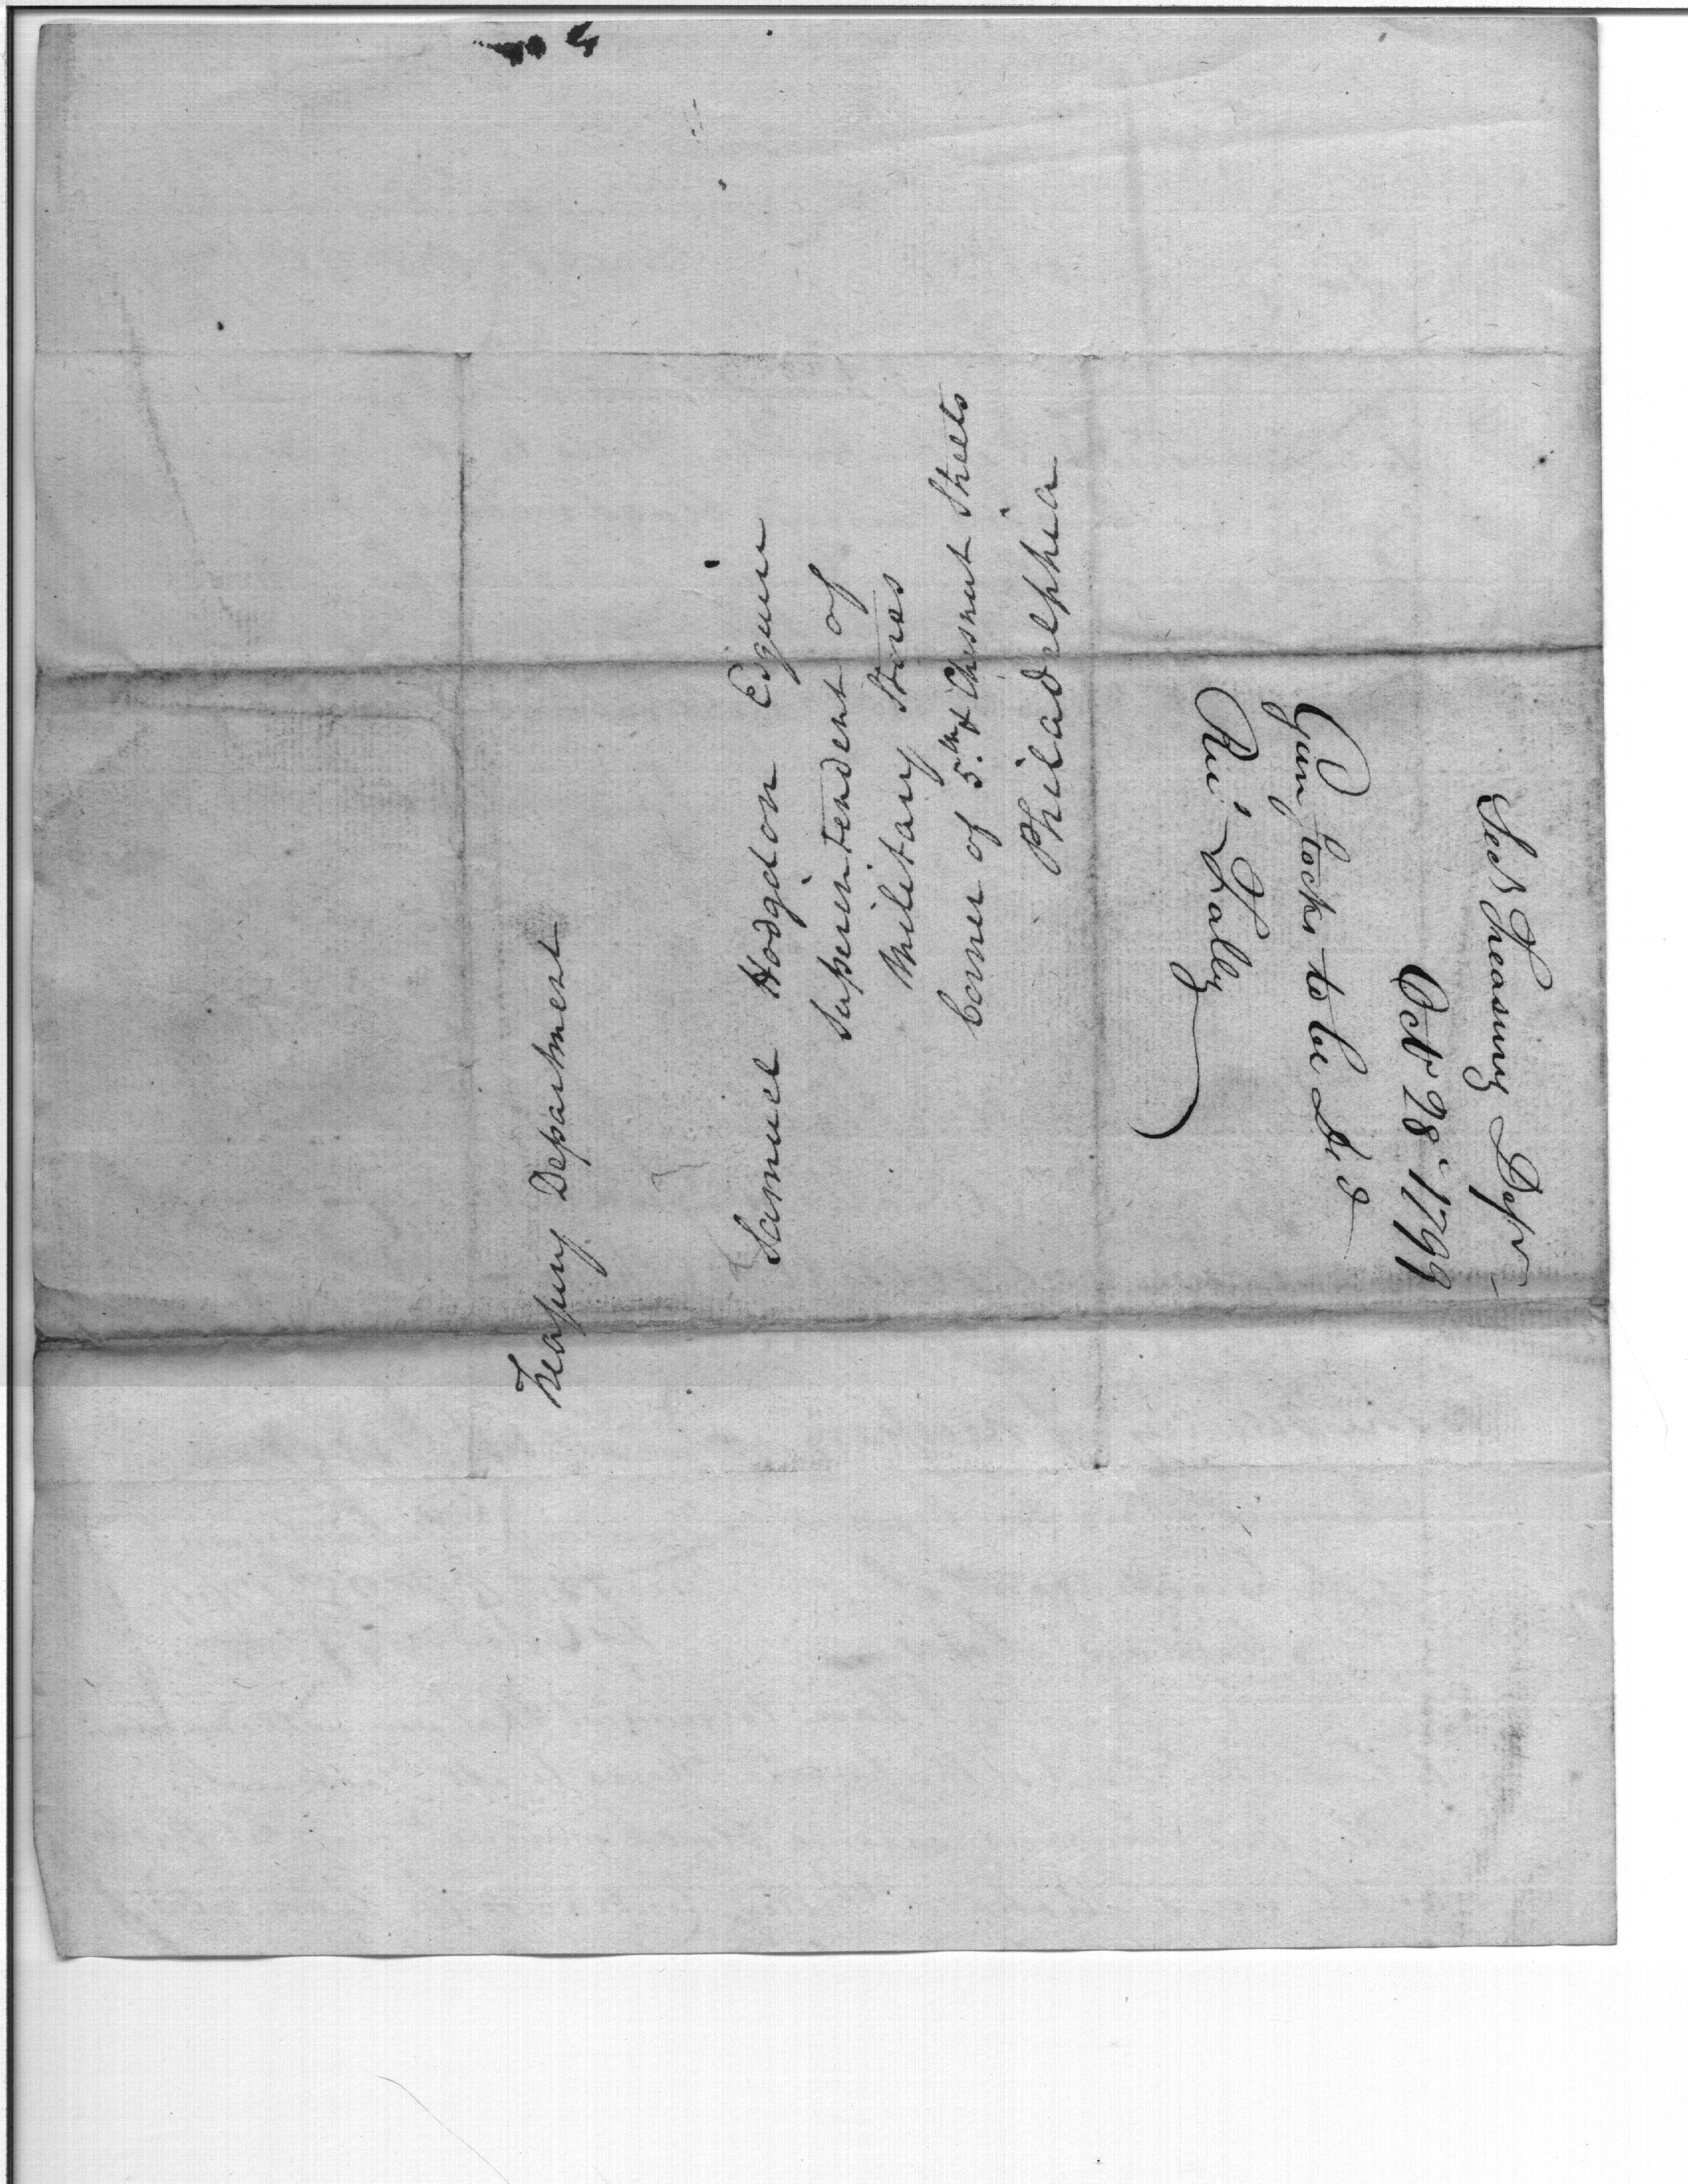 Treasury Department
Samuel Hodgdon Esquire
Superintendent of
Military Stores
Corner of 5.th & Chesnut Streets
Philadelphia
Treasury Dept
Octr 28. 1799
Gun Locks to be
Lally